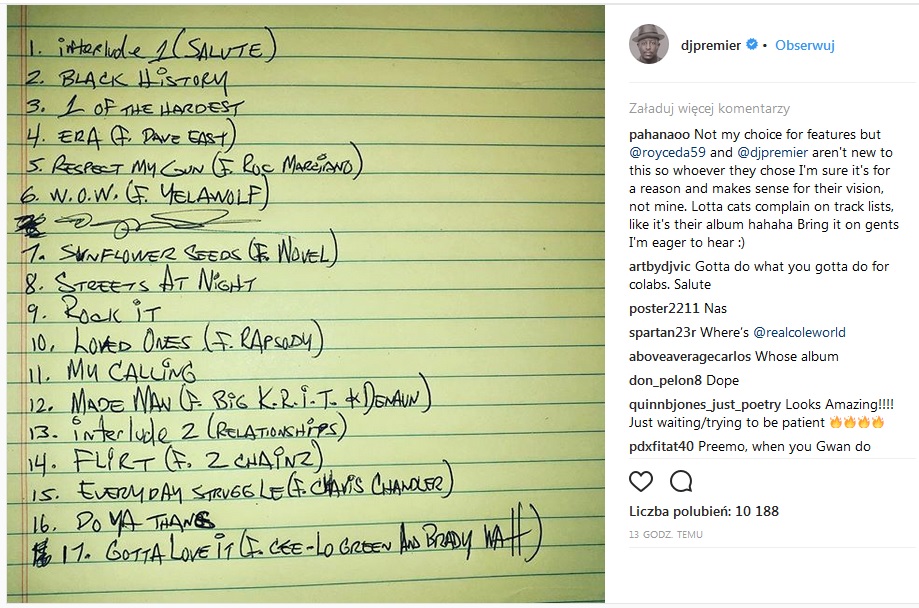 1. interlude 1 (SALUTE)
2. BLACK HISTORY
3. 1 OF THE HARDEST
4. ERA (F. DAVE EAST)
5. RESPECT MY GUN (F. ROC MARCIANO)
6. W.O.W. (F. YELAWOLF)
7. SUNFLOWER SEEDS (F. NOVEL)
8. STREETS AT NIGHT
9. ROCK IT
10. LOVED ONES (F. RAPSODY)
11. MY CALLING
12. MADE MAN (F. BIG K.R.I.T. & DENAUN)
13. interlude 2 (RELATIONSHIPS)
14. FLIRT (F. 2 CHAINZ)
15. EVERYDAY STRUGGLE (F. CHAVIS CHANDLER)
16. DO YA THANG
17. GOTTA LOVE IT (F. CEE-LO GREEN AND BRADY WATT)
djpremier • Obserwuj
Załaduj więcej komentarzy
pahanaoo Not my choice for features but
@royceda59 and @djpremier aren't new to
this so whoever they chose I'm sure it's for
a reason and makes sense for their vision,
not mine. Lotta cats complain on track lists,
like it's their album hahaha Bring it on gents
I'm eager to hear :)
artbydjvic Gotta do what you gotta do for
colabs. Salute
poster2211 Nas
spartan23r Where's @realcoleworld
aboveaveragecarlos Whose album
don_pelon8 Dope
quinnbjones_just_poetry Looks Amazing!!!!
Just waiting/trying to be patient 🔥🔥🔥🔥
pdxfitat40 Preemo, when you Gwan do
Liczba polubień: 10 188
13 GODZ. TEMU